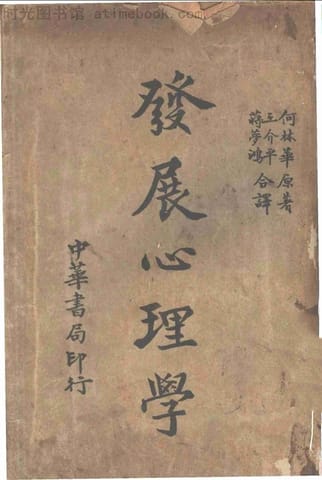 时光图书馆 atimebook.com
何林華原著
王介平
蔣夢鴻
合譯
發展心理學
中華書局印行